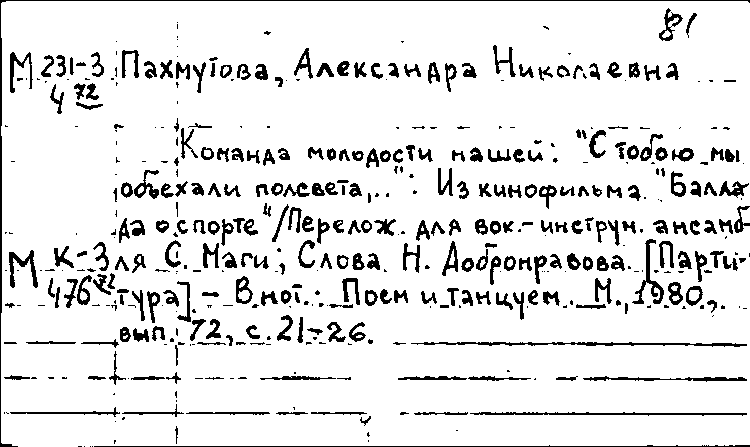 81
М 231-3 Пахмутова, Александра Николаевна
4 72
Команда молодости нашей: "С тобою мы
объехали полсвета,..": Из кинофильма "Балла-
да о спорте"/Перелож. для вок.-инструн. ансамб-
М К-3 ля С. Маги; Слова Н. Добронравова. [Парти-
476 72 тура]. - В нот.: Поем и танцуем. М., 1980,
вып. 72, с. 21-26.